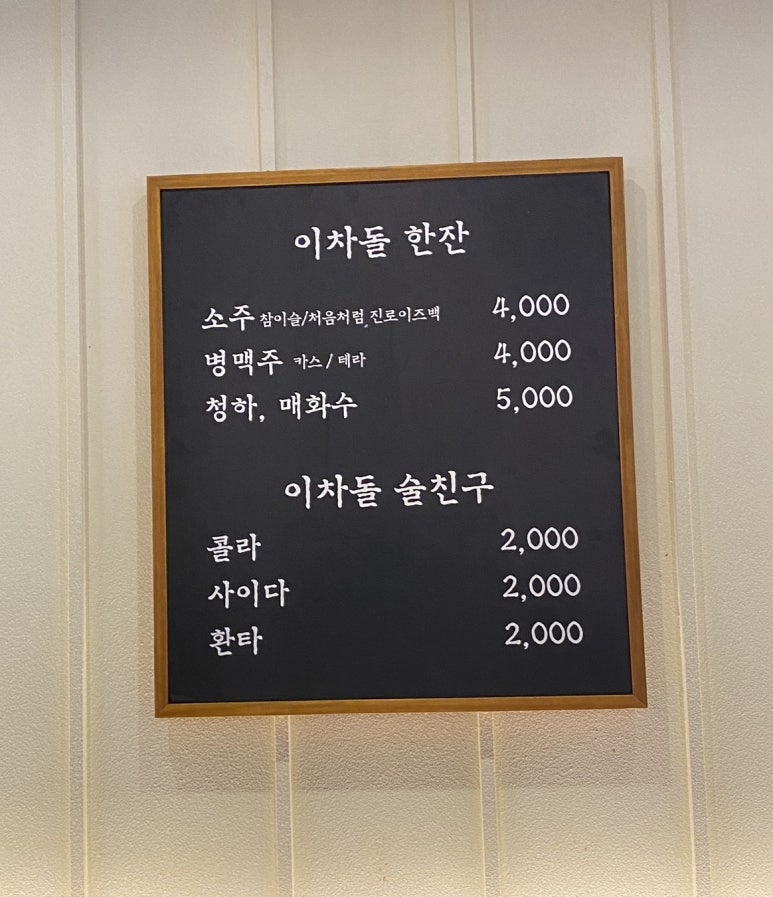 이차돌 한잔
소주 참이슬/처음처럼,진로이즈백 4,000
병맥주 카스 / 테라 4,000
청하, 매화수 5,000
이차돌 술친구
콜라 2,000
사이다 2,000
환타 2,000